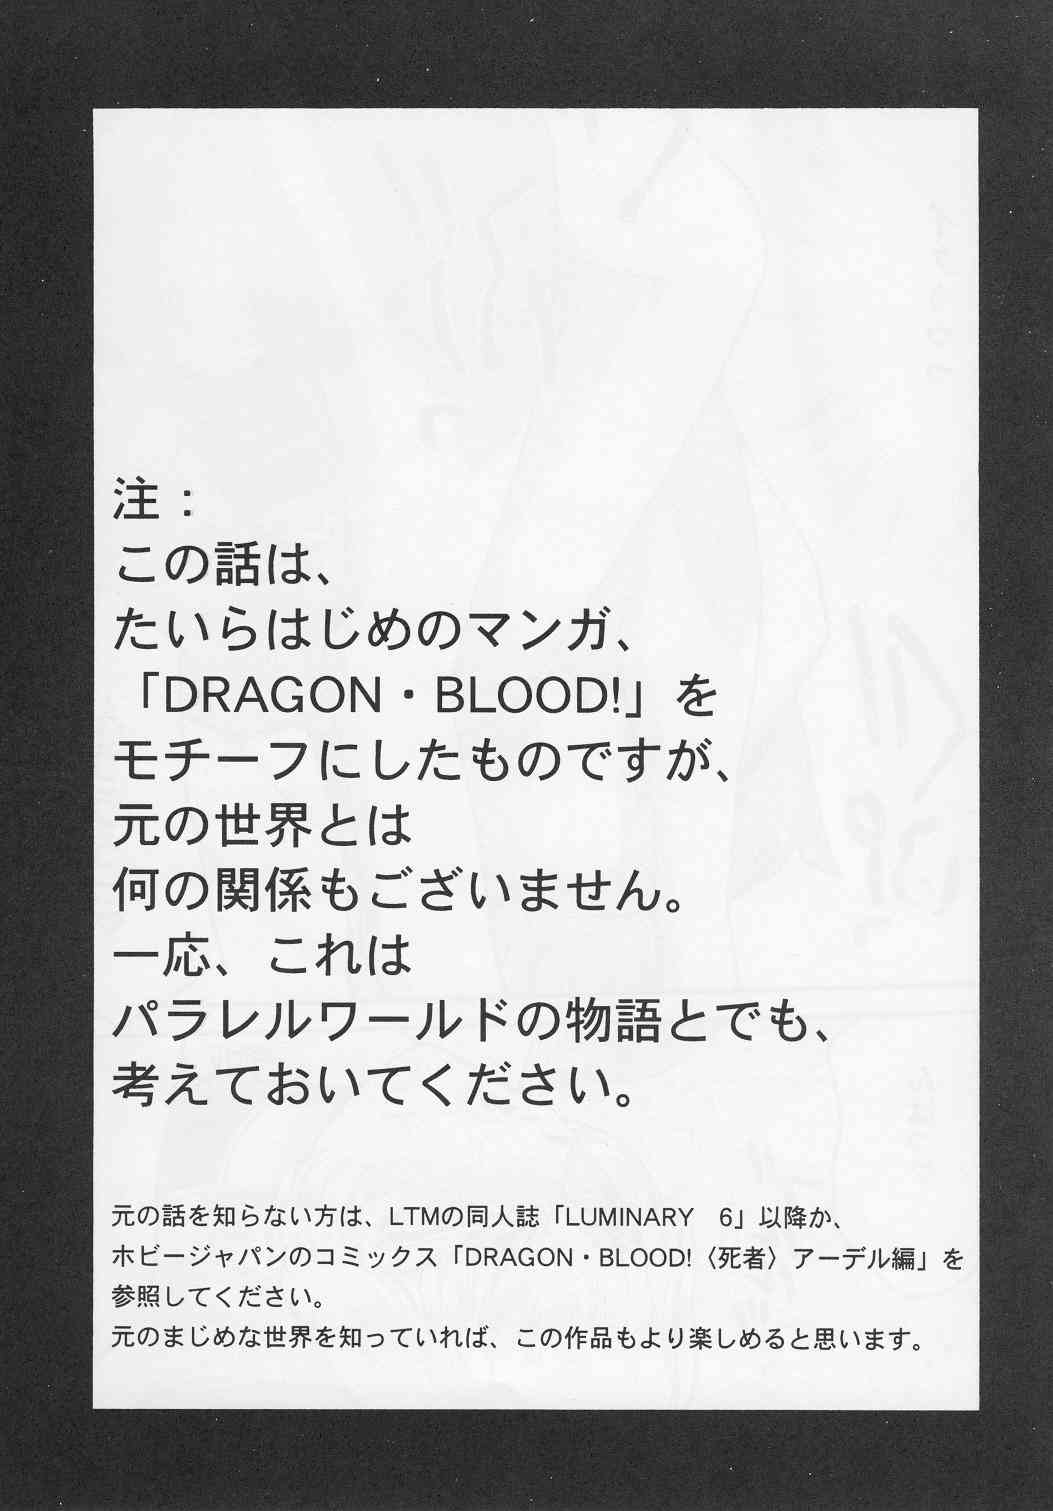 注：
この話は、
たいらはじめのマンガ、
「DRAGON・BLOOD!」を
モチーフにしたものですが、
元の世界とは
何の関係もございません。
一応、これは
パラレルワールドの物語とでも、
考えておいてください。
元の話を知らない方は、LTMの同人誌「LUMINARY　6」以降か、
ホビージャパンのコミックス「DRAGON・BLOOD!〈死者〉アーデル編」を
参照してください。
元のまじめな世界を知っていれば、この作品もより楽しめると思います。